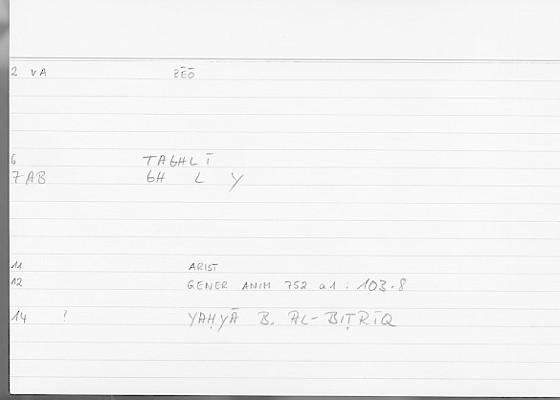 2 VA ZĒŌ
6 TAGHLĪ
7AB GH L Y
11 ARIST
12 GENER ANIM 752 a1 : 103.8
14 ! YAḤYĀ B. AL-BIṬRĪQ